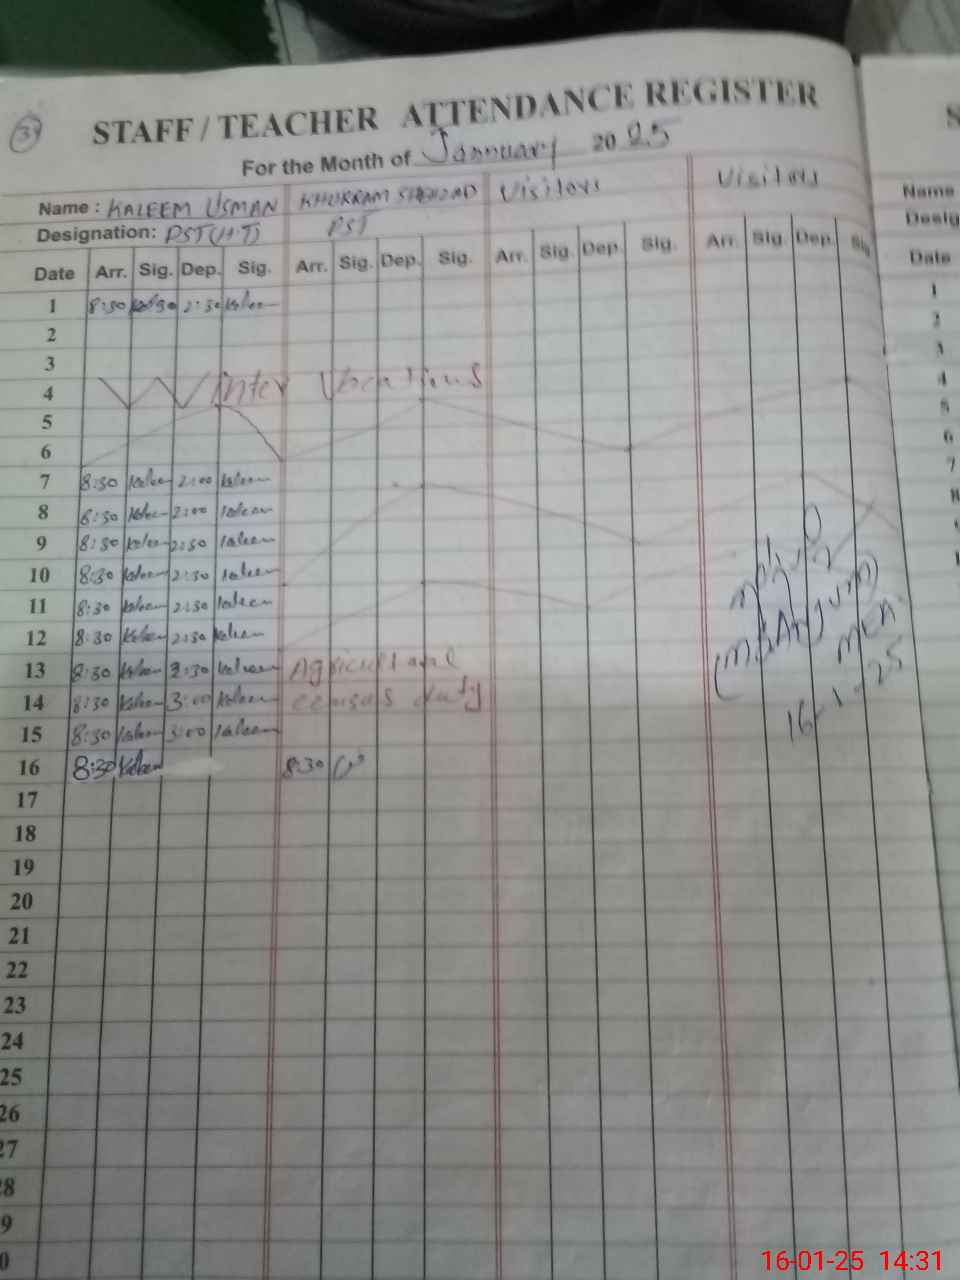 34
STAFF / TEACHER ATTENDANCE REGISTER
For the Month of January 2025
Name : KALEEM USMAN KHURRAM SHAHZAD Visitors Visitors
Designation: PST(HT) PST
Date Arr. Sig. Dep. Sig. Arr. Sig. Dep. Sig. Arr. Sig. Dep. Sig. Arr. Sig. Dep. Sig.
1 8:30 Kaleem 2:30 Kaleem
2
3
4 Winter Vacations
5
6
7 8:30 Kaleem 2:00 Kaleem
8 8:30 Kaleem 2:00 Kaleem
9 8:30 Kaleem 2:30 Kaleem
10 8:30 Kaleem 2:30 Kaleem
11 8:30 Kaleem 2:30 Kaleem
12 8:30 Kaleem 2:30 Kaleem
13 8:30 Kaleem 2:30 Kaleem Agricultural
14 8:30 Kaleem 3:00 Kaleem census duty
15 8:30 Kaleem 3:00 Kaleem
16 8:30 Kaleem 8:30
17
18
19
20
21
22
23
24
25
26
27
8
9
0
(M. Anjum)
MEA
16-1-25
Name
Desig
Date
1
2
3
4
5
6
7
16-01-25 14:31